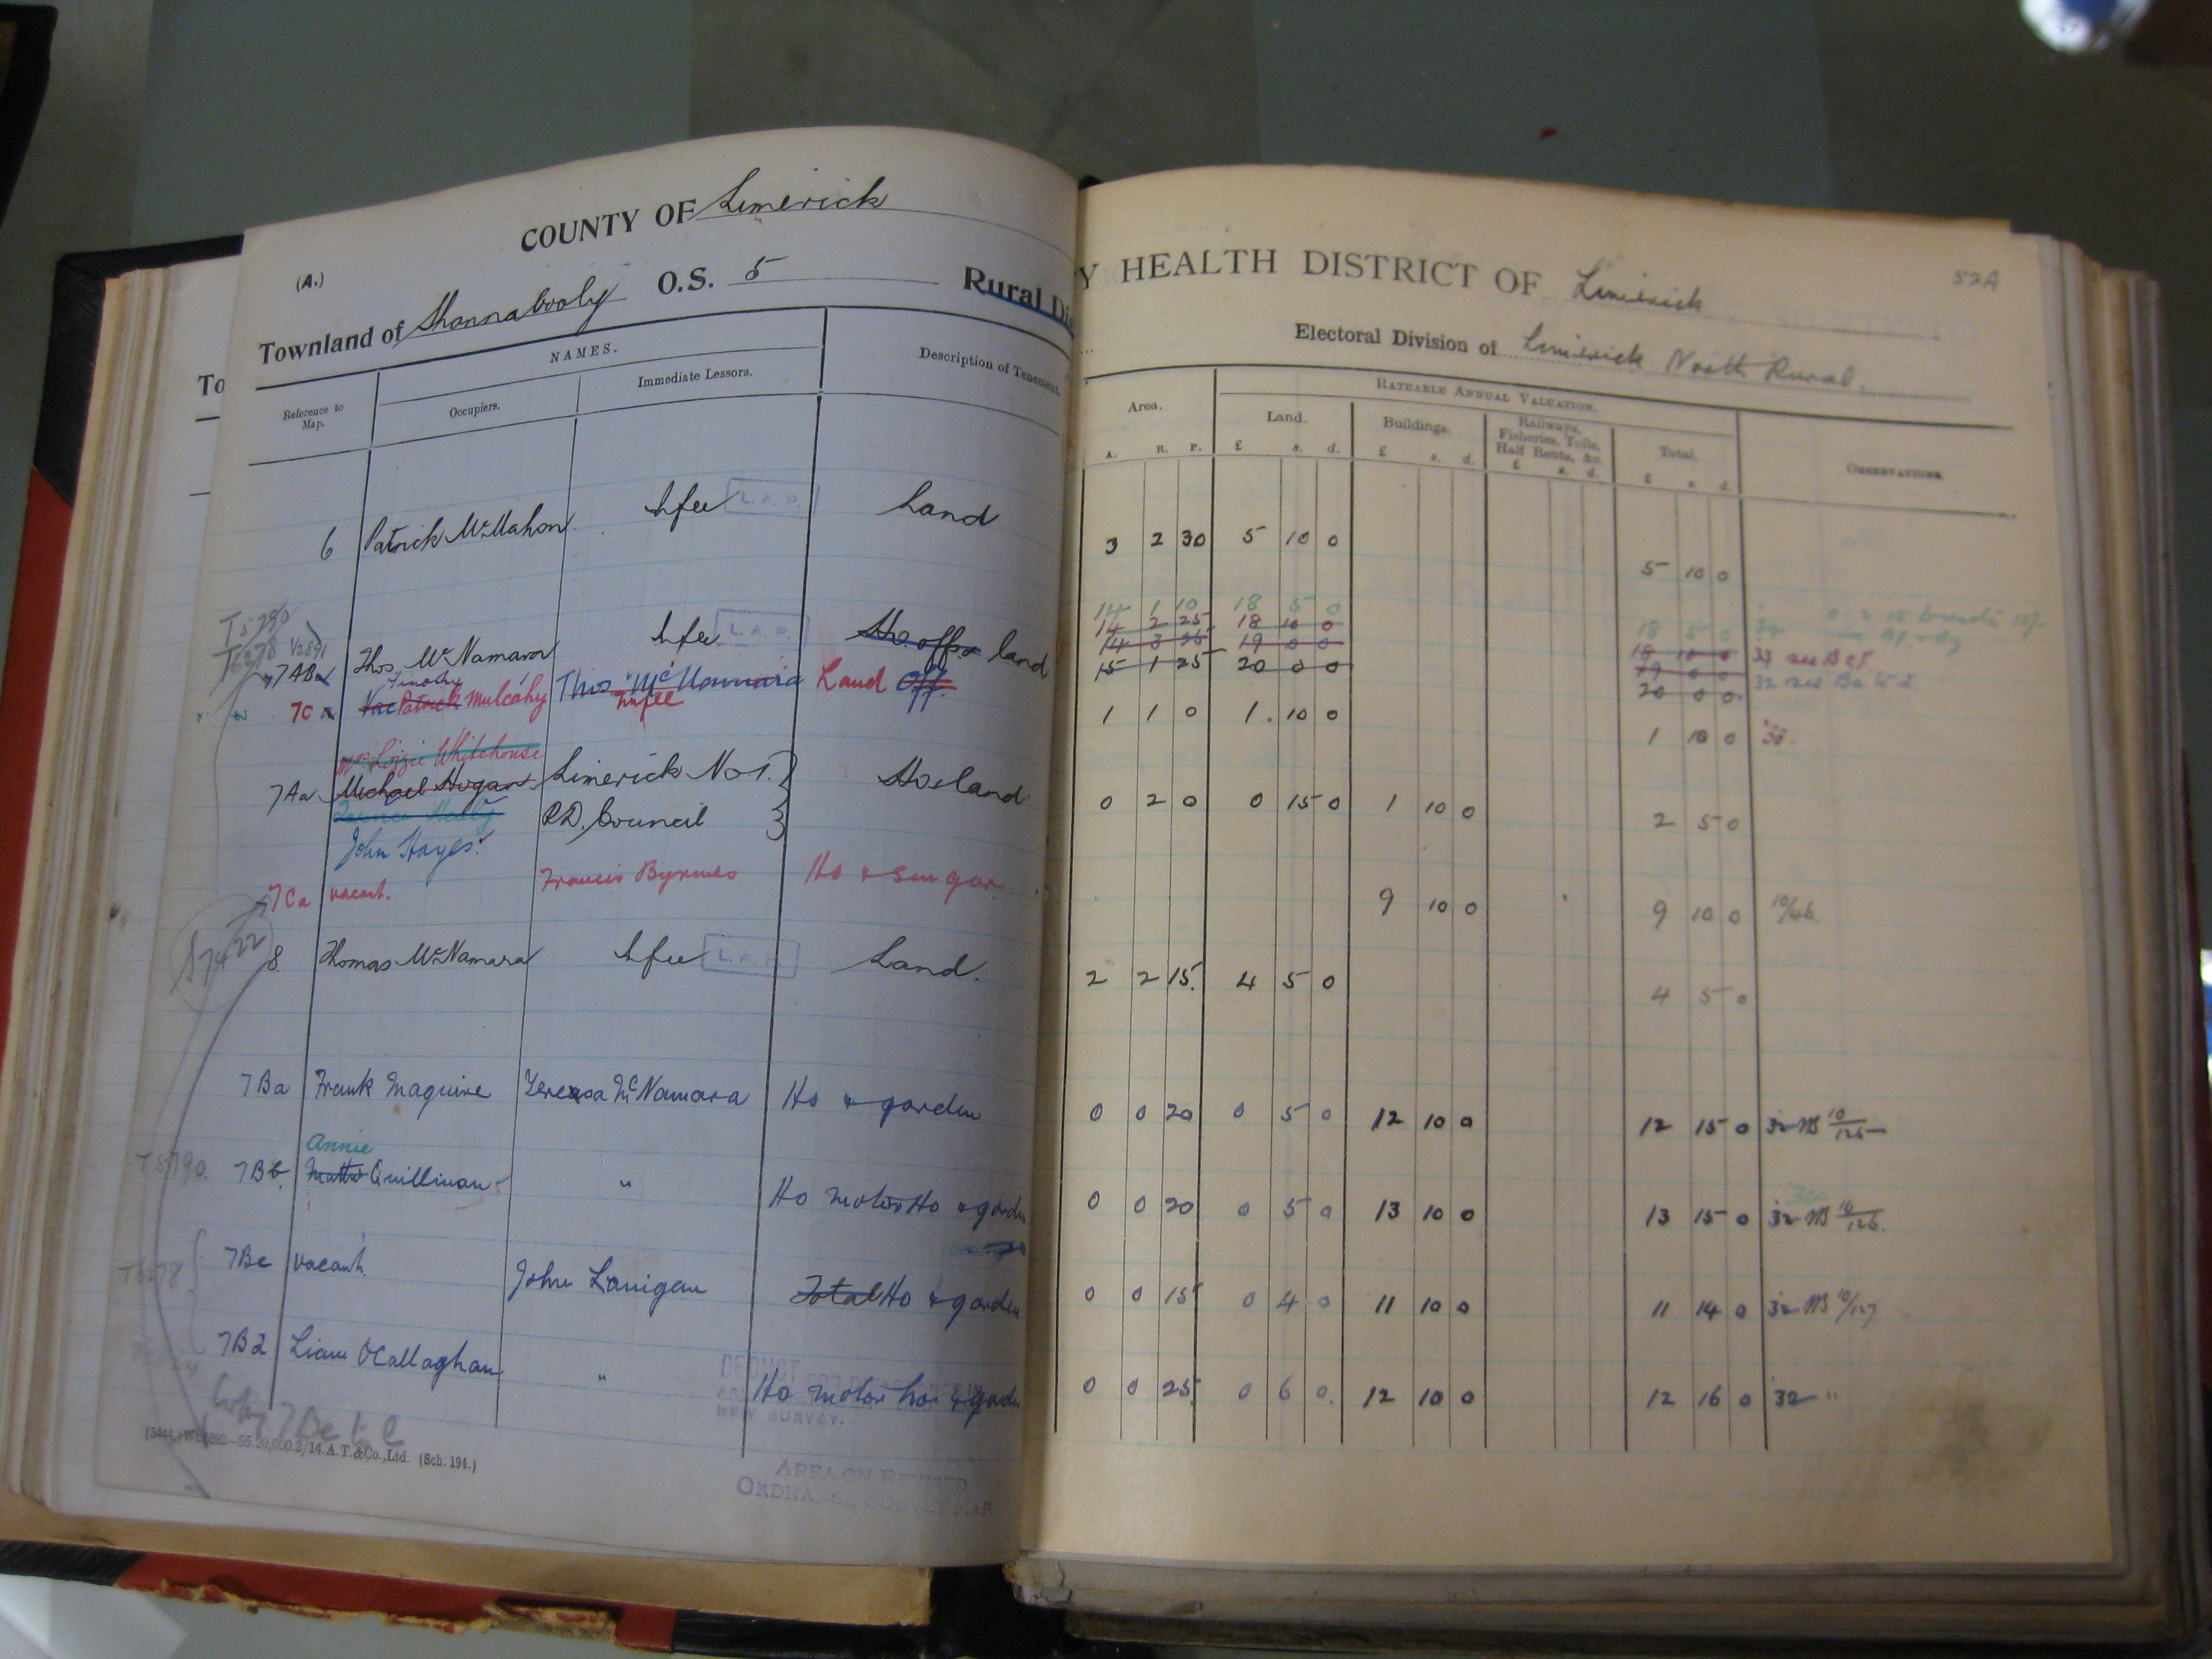 COUNTY OF Limerick
(A.)
Townland of Shannabooly O.S. 5 Rural Di
Reference to Map.
NAMES.
Occupiers.
Immediate Lessors.
Description of Tenement.
6 Patrick McMahon In fee L.A.P. Land
T5290
T6278 V2891
7AB Thos. McNamara In fee L.A.P. Ho. offs & land
Timothy
7C Vac Patrick Mulcahy Thos McNamara Land Off.
Infee
Mrs Lizzie Whitehouse
7Aa Michael Hogan Limerick No 1. Ho & land
R.D. Council
John Hayes
7Ca vacant. Francis Byrnes Ho & sm gar.
S7422
8. Thomas McNamara In fee L.A.P. Land.
7Ba Frank Maguire Tereasa McNamara Ho & garden
Annie
7Bb. Matthw Quillinan " Ho motor Ho & garden
7Bc vacant. John Lanigan Total Ho & garden
T6278
7Bd Liam OCallaghan " Ho motor ho & garden
NEW SURVEY.
(Sch. 194.)
AREA ON REVISED
ORDNANCE SURVEY MAP
Y HEALTH DISTRICT OF Limerick 52A
Electoral Division of Limerick North Rural.
Area.
RATEABLE ANNUAL VALUATION.
Land.
Buildings.
Railways,
Fisheries, Tolls,
Half Rents, &c.
Total.
OBSERVATIONS.
A. R. P. £ s. d. £ s. d. £ s. d. £ s. d.
3 2 30 5 10 0 5 10 0
14 1 10 18 5 0 18 5 0
14 2 25 18 10 0 18 10 0
14 3 25 19 0 0 19 0 0
15 1 25 20 0 0 20 0 0
1 1 0 1. 10 0 1 10 0 '33.
0 2 0 0 15 0 1 10 0 2 5 0
9 10 0 9 10 0 10/46.
2 2 15. 4 5 0 4 5 0
0 0 20 0 5 0 12 10 0 12 15 0 32 NB 10/125
0 0 20 0 5 0 13 10 0 13 15 0 32 NB 10/126.
0 0 15 0 4 0 11 10 0 11 14 0 32 NB 10/127
0 0 25 0 6 0. 12 10 0 12 16 0 '32 "